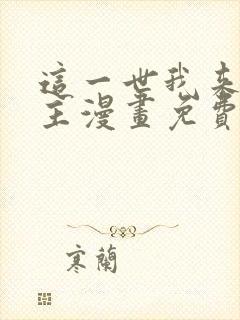 這一世我來
主漫畫免費
寒蘭